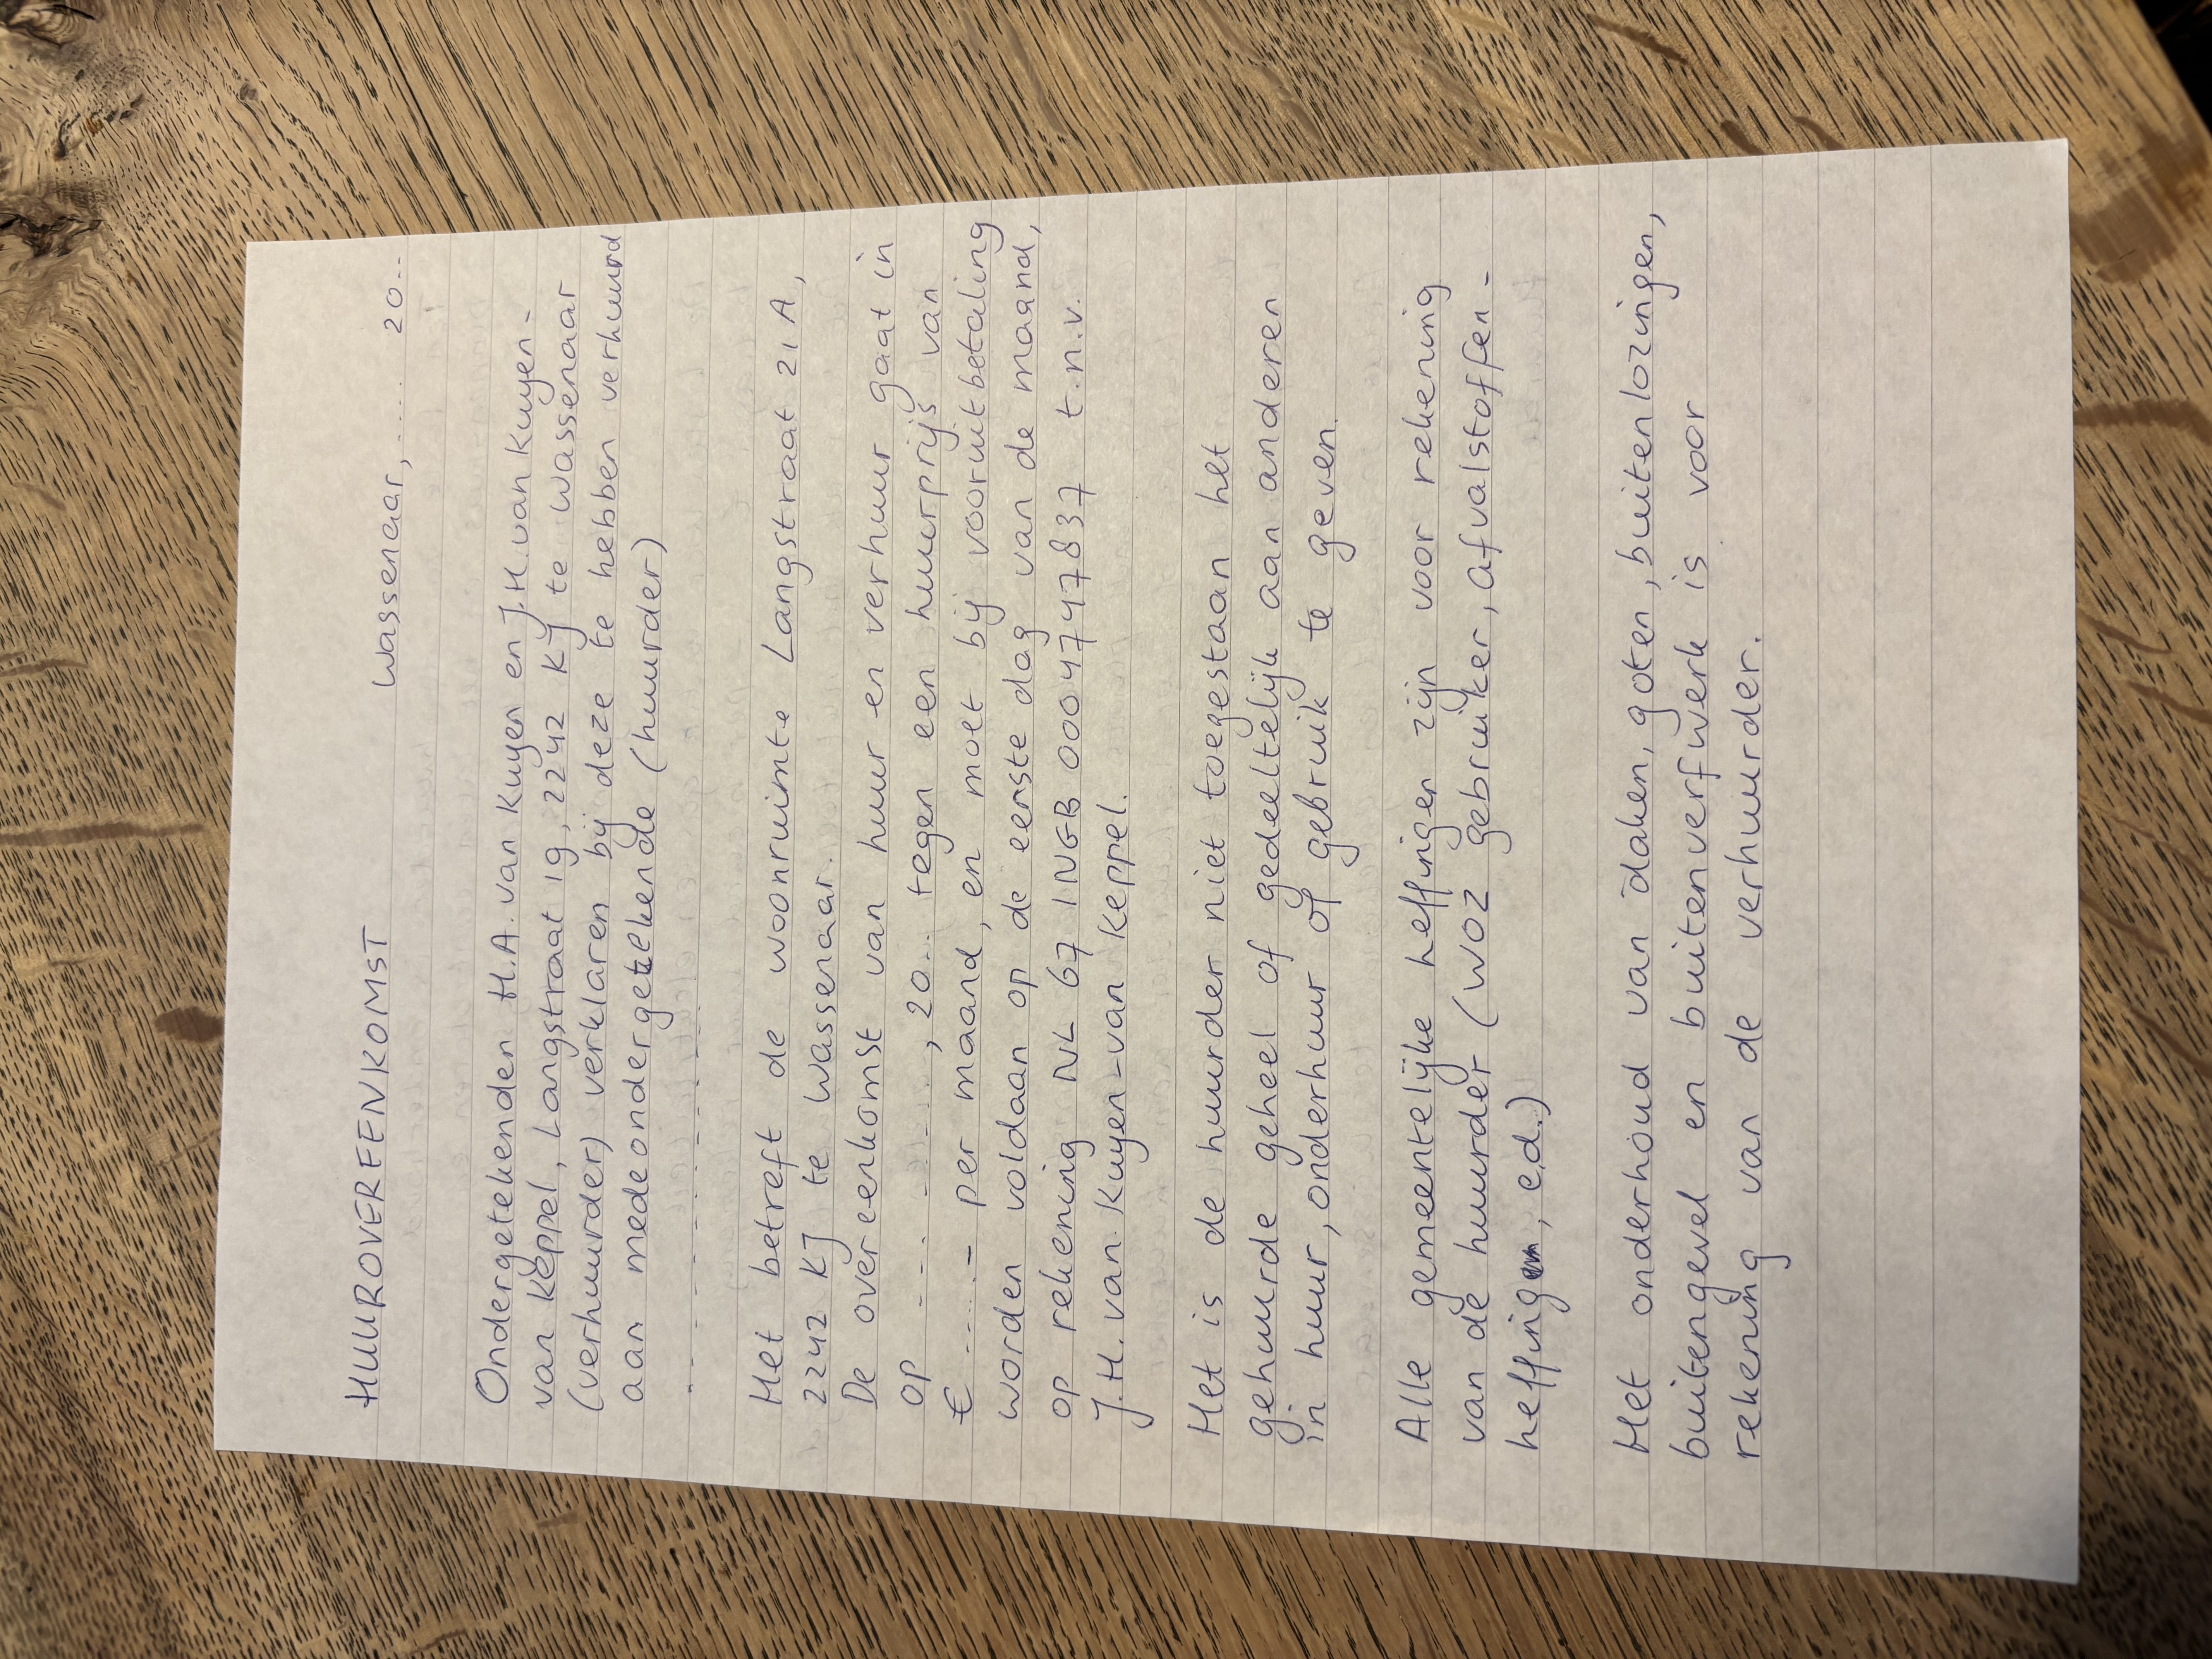 HUUROVEREENKOMST
Wassenaar, ..... 20..
Ondergetekenden H.A. van Kuyen en J.H. van Kuyen-
van Keppel, Langstraat 19, 2242 KJ te Wassenaar
(verhuurder) verklaren bij deze te hebben verhuurd
aan mede ondergetekende (huurder)
.....................
Het betreft de woonruimte Langstraat 21 A,
2242 KJ te Wassenaar.
De overeenkomst van huur en verhuur gaat in
op ........., 20.. tegen een huurprijs van
€ ......- per maand, en moet bij vooruitbetaling
worden voldaan op de eerste dag van de maand,
op rekening NL 67 INGB 0004747837 t.n.v.
J.H. van Kuyen-van Keppel.
Het is de huurder niet toegestaan het
gehuurde geheel of gedeeltelijk aan anderen
in huur, onderhuur of gebruik te geven.
Alle gemeentelijke heffingen zijn voor rekening
van de huurder (WOZ gebruiker, afvalstoffen-
heffing, e.d.)
Het onderhoud van daken, goten, buitenlozingen,
buitengevel en buitenverfwerk is voor
rekening van de verhuurder.